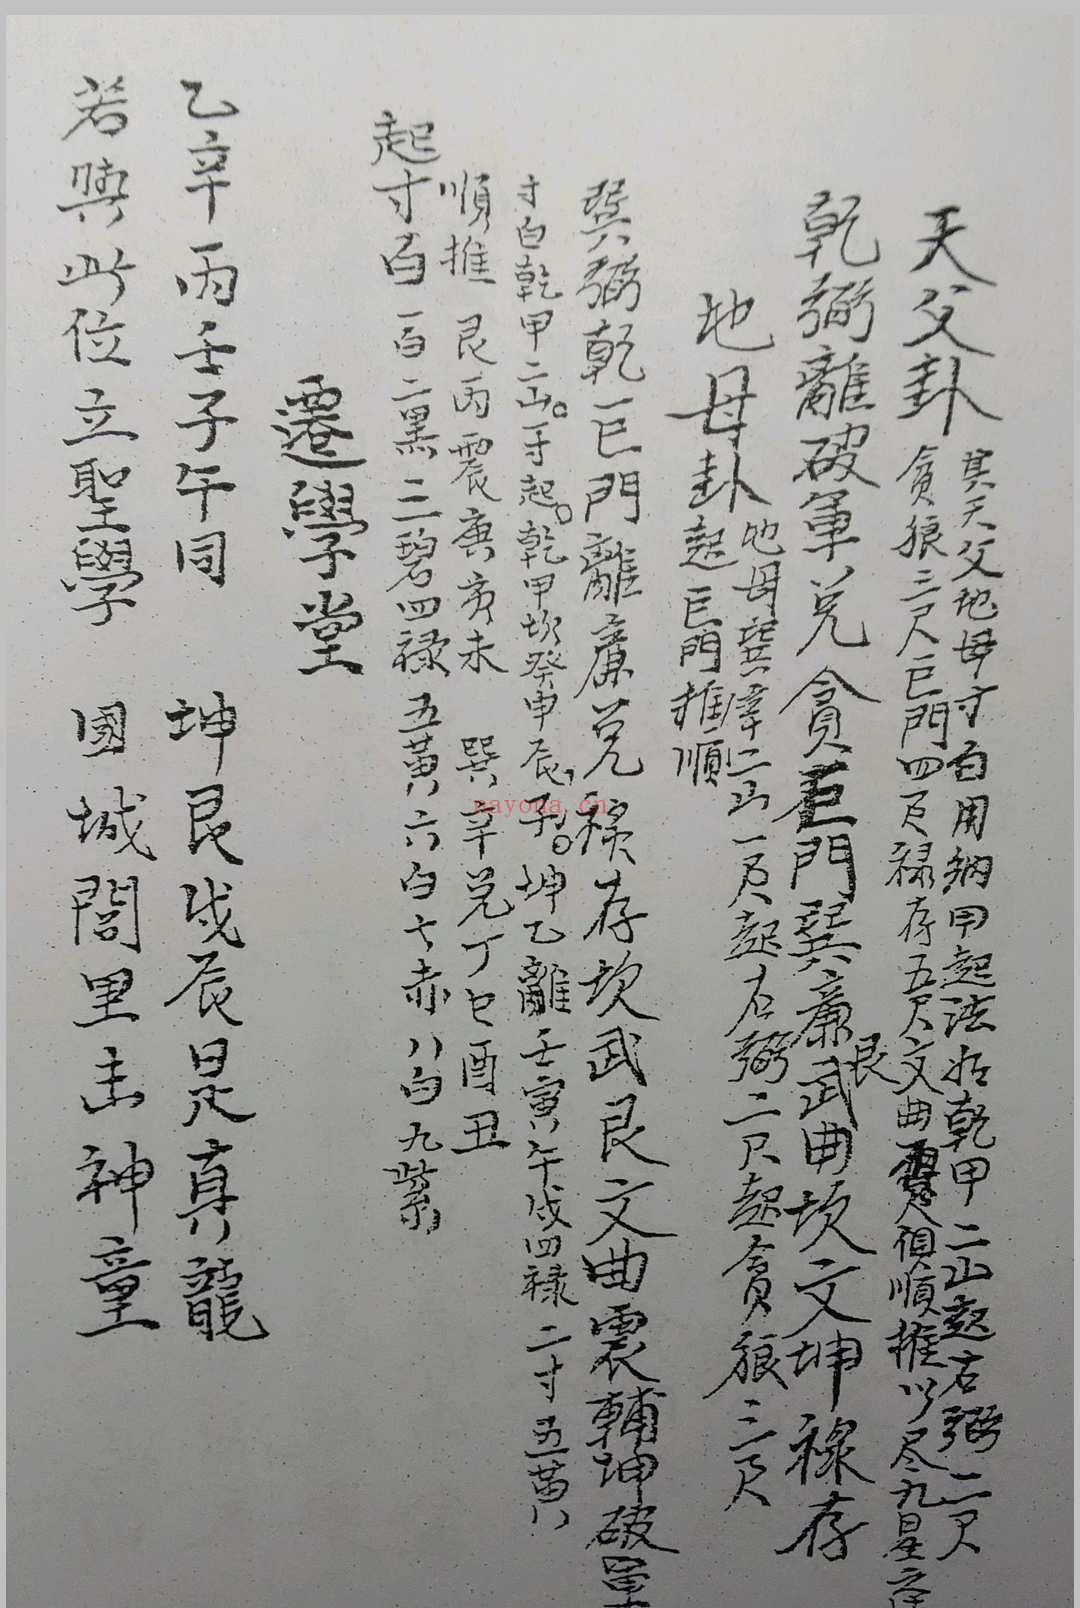 天父卦
其天父地母寸白用納甲起法如乾甲二山起右弼二尺
貪狼三尺巨門四尺祿存五尺文曲俱順推以尽九星
乾弼離破軍兌貪巨門巽廉武曲坎文坤祿存
艮
地母卦
地母巽辛二山一尺起右弼二尺起貪狼三尺
起巨門推順
巽弼乾巨門離廉兌祿存坎武艮文曲震輔坤破軍
寸白乾甲二山。一寸起。乾甲坎癸申辰,子。坤乙離壬寅午戌四祿 二寸五黃
順推 艮丙震庚亥未 巽辛兌丁巳酉丑
起寸白一百二黑三碧四祿五黃六白七赤八白九紫
遷學堂
乙辛丙壬子午同 坤艮戌辰是真龍
若與此位立聖學 國城閭里出神童
nayona.cn